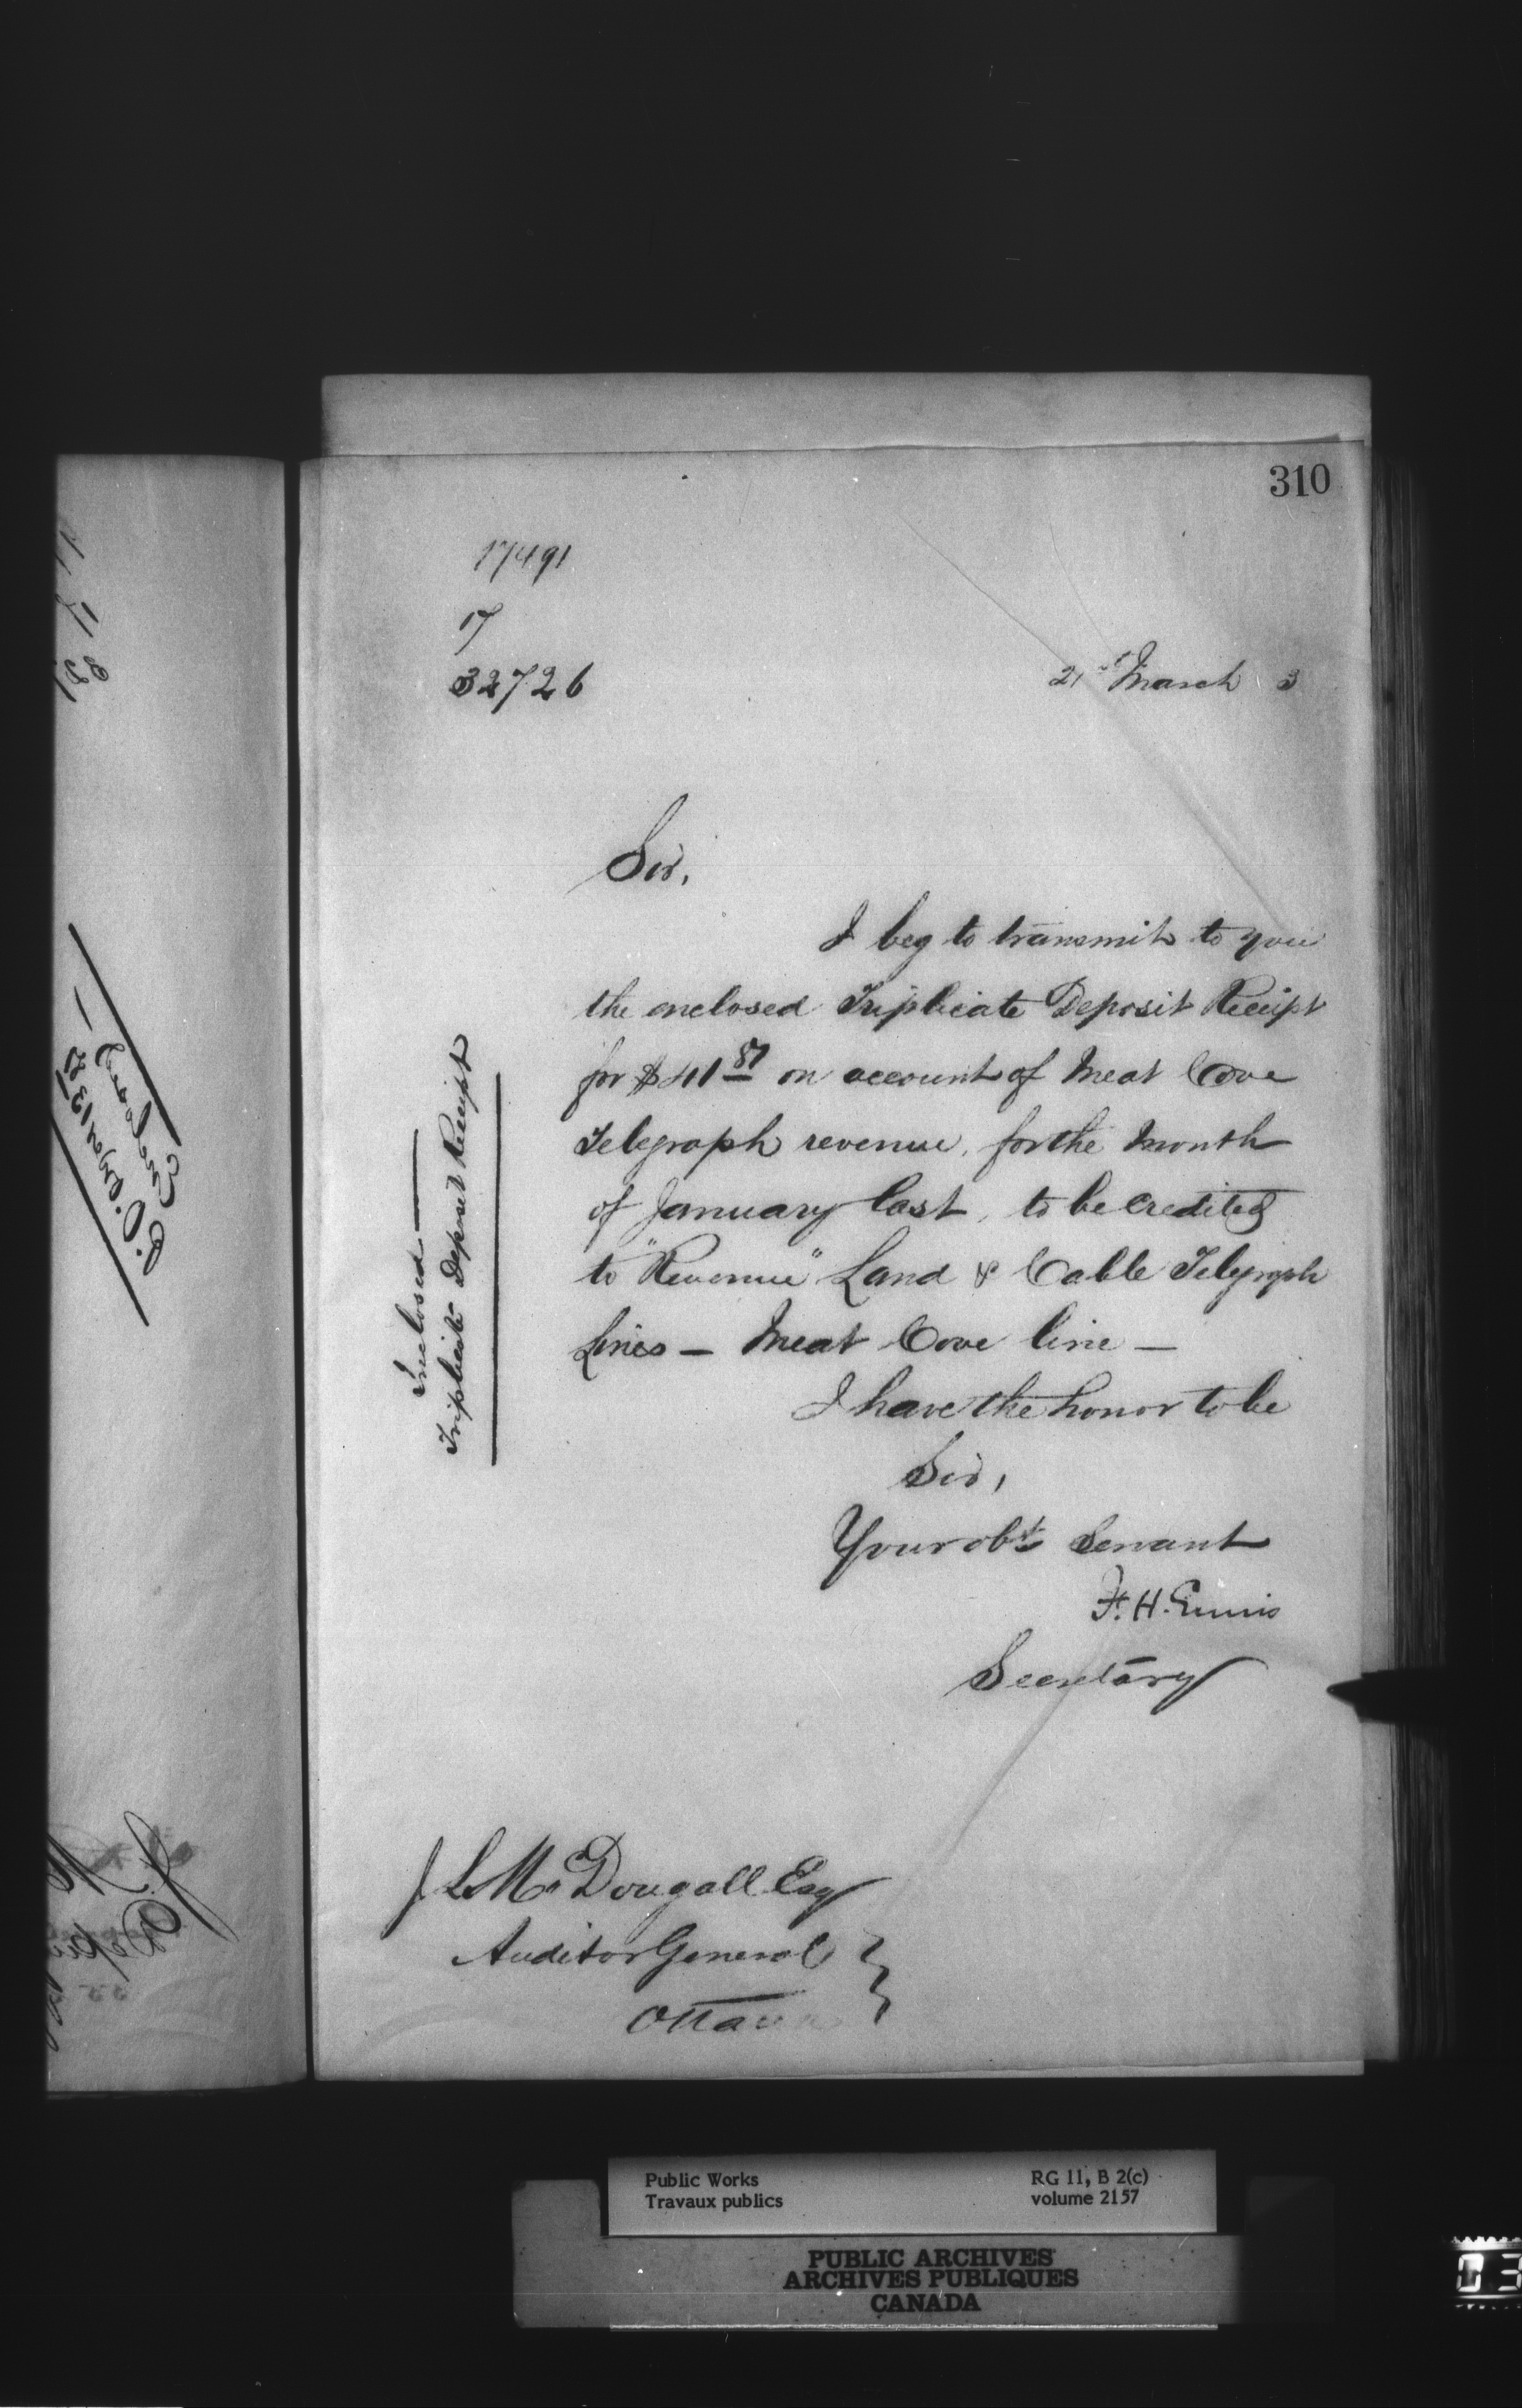 310
17491
17
32726
21st March 3
Sir,
I beg to transmit to you
the enclosed Triplicate Deposit Receipt
for $41 87 on account of Meat Cove
Telegraph revenue, for the Month
of January last, to be credited
to "Revenue" Land & Cable Telegraph
Lines — Meat Cove line —
I have the honor to be
Sir,
Your obt Servant
F. H. Ennis
Secretary
Inclosed
Triplicate Deposit Receipt
J L McDougall Esq
Auditor General
Ottawa
Public Works
Travaux publics
RG 11, B 2(c)
volume 2157
PUBLIC ARCHIVES
ARCHIVES PUBLIQUES
CANADA
03